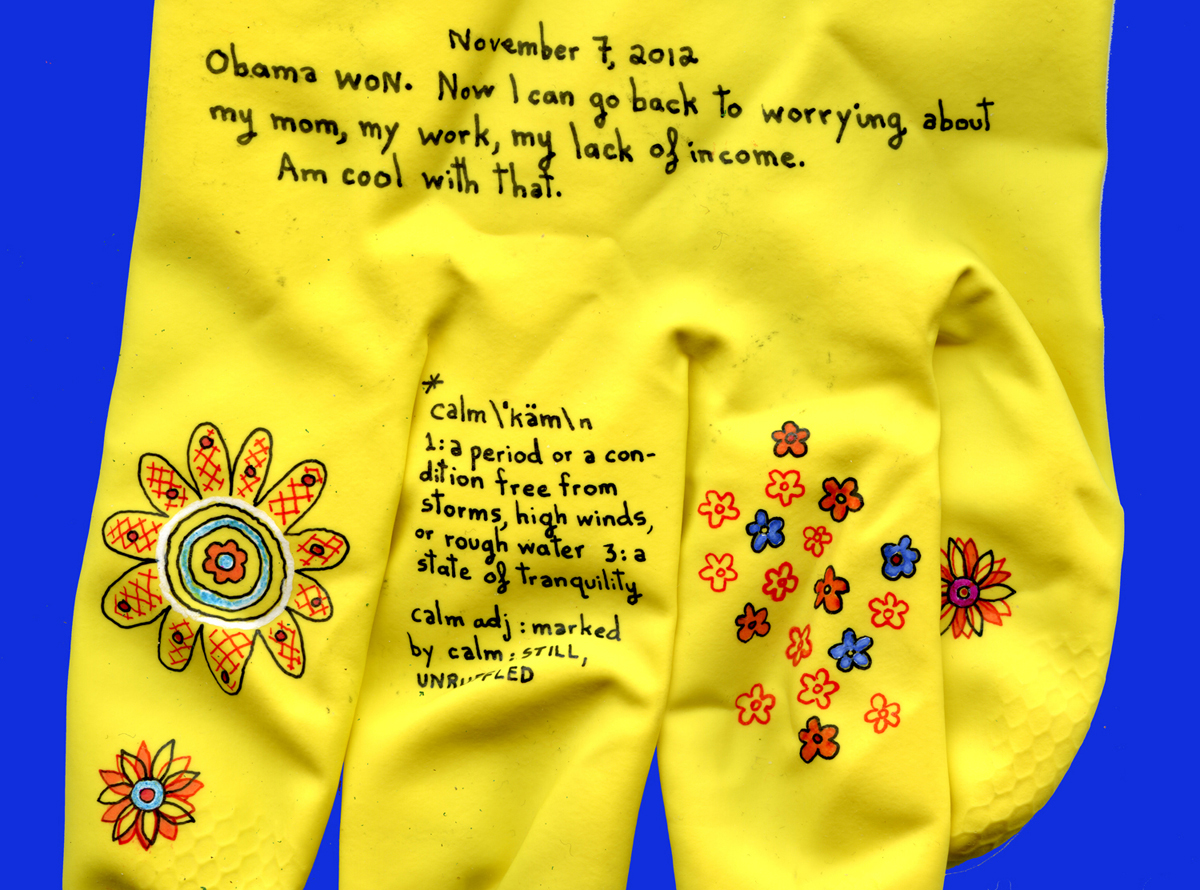 November 7, 2012
Obama WON. Now I can go back to worrying about
my mom, my work, my lack of income.
Am cool with that.
*
calm \'käm\ n
1: a period or a con-
dition free from
storms, high winds,
or rough water 3: a
state of tranquility
calm adj : marked
by calm : STILL,
UNRUFFLED